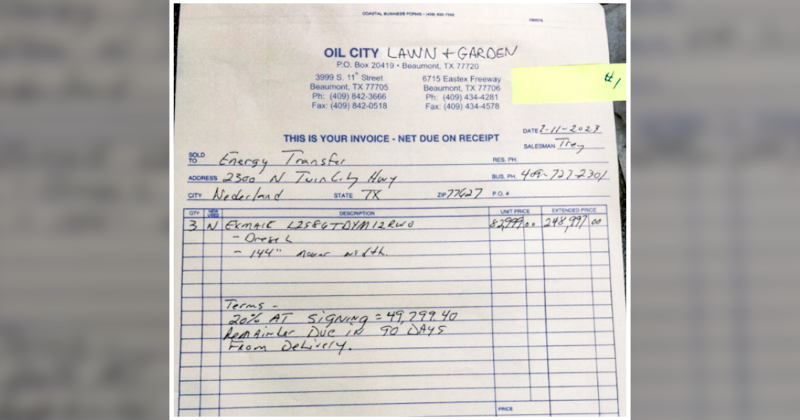 COASTAL BUSINESS FORMS • (409) 835-7500
OIL CITY LAWN + GARDEN
P.O. Box 20419 • Beaumont, TX 77720
3999 S. 11th Street
Beaumont, TX 77705
Ph: (409) 842-3666
Fax: (409) 842-0518
6715 Eastex Freeway
Beaumont, TX 77706
Ph: (409) 434-4281
Fax: (409) 434-4578
#1
THIS IS YOUR INVOICE - NET DUE ON RECEIPT
DATE -11-2023
SALESMAN Trey
SOLD TO Energy Transfer RES. PH.
ADDRESS 2300 N Twin City Hwy BUS. PH. 409-727-2301
CITY Nederland STATE TX ZIP 77627 P.O. #
QTY NEW USED DESCRIPTION UNIT PRICE EXTENDED PRICE
3 N 82,999.00 248,997.00
- Diesel
- 144" mower width.
Terms -
20% AT SIGNING = 49,799.40
Remainder Due in 90 DAYS
From Delivery.
PRICE